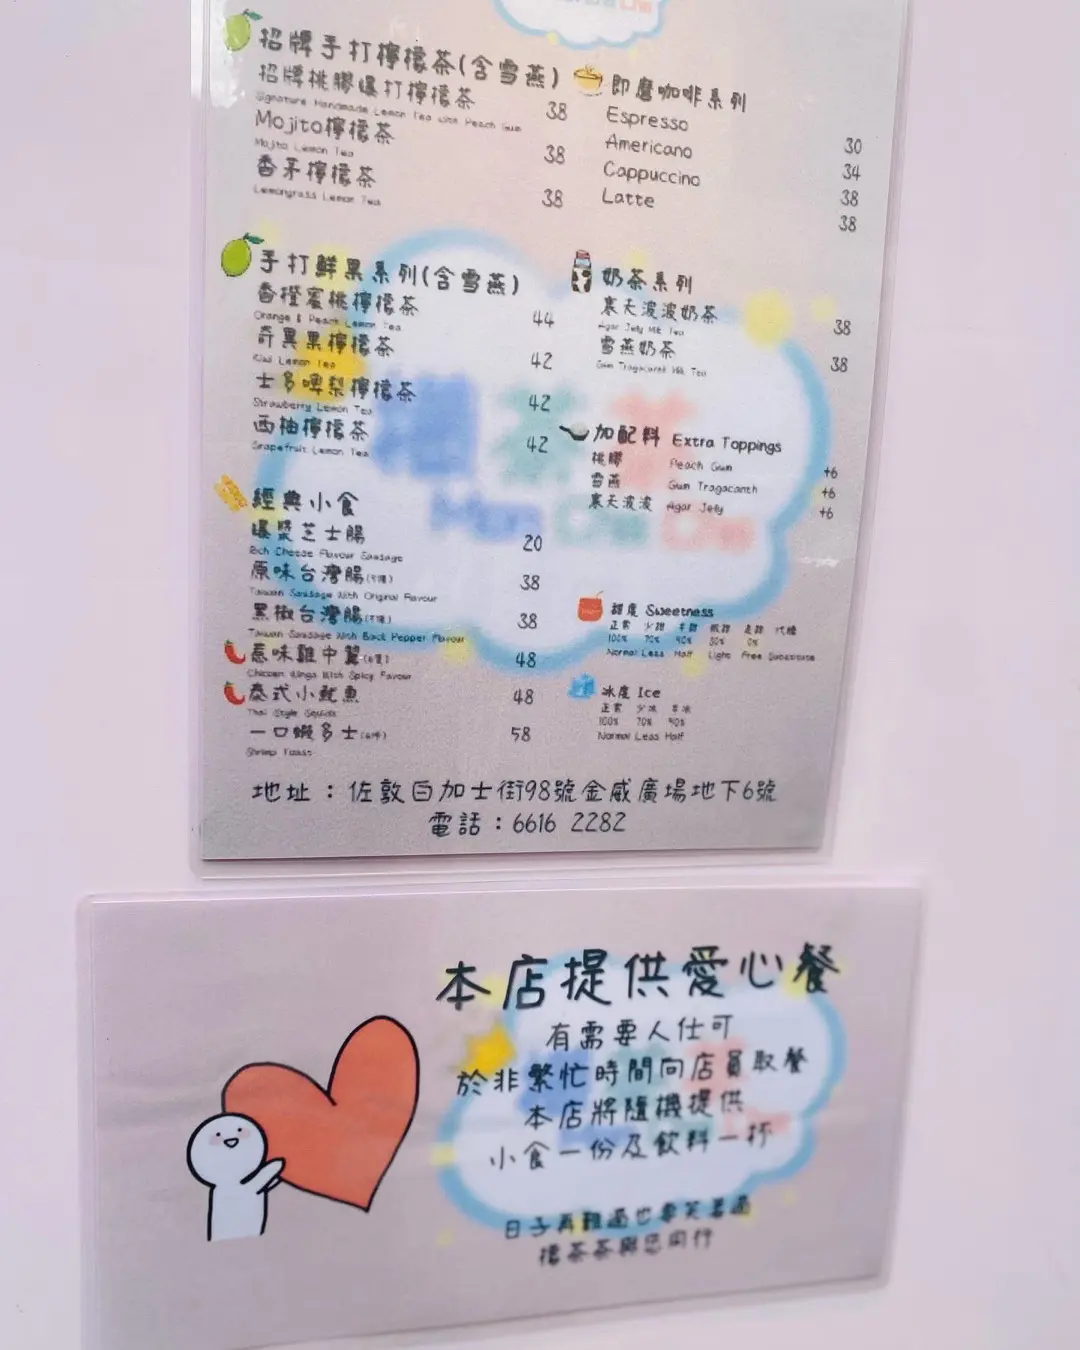 招牌手打檸檬茶(含雪燕)
招牌桃膠爆打檸檬茶 38
Signature Handmade Lemon Tea with Peach Gum
Mojito檸檬茶 38
Mojito Lemon Tea
香茅檸檬茶 38
Lemongrass Lemon Tea
即磨咖啡系列
Espresso 30
Americano 34
Cappuccino 38
Latte 38
手打鮮果系列(含雪燕)
香橙蜜桃檸檬茶 44
Orange & Peach Lemon Tea
奇異果檸檬茶 42
Kiwi Lemon Tea
士多啤梨檸檬茶 42
Strawberry Lemon Tea
西柚檸檬茶 42
Grapefruit Lemon Tea
奶茶系列
寒天波波奶茶 38
Agar Jelly Milk Tea
雪燕奶茶 38
Gum Tragacanth Milk Tea
加配料 Extra Toppings
桃膠 Peach Gum +6
雪燕 Gum Tragacanth +6
寒天波波 Agar Jelly +6
經典小食
爆漿芝士腸 20
Rich Cheese Flavour Sausage
原味台灣腸 38
Taiwan Sausage With Original Flavour
黑椒台灣腸 38
Taiwan Sausage With Back Pepper Flavour
惹味雞中翼 48
Chicken Wings With Spicy Flavour
泰式小魷魚 48
Thai Style Squids
一口蝦多士 58
Shrimp Toast
甜度 Sweetness
正常 少甜 半甜 微甜 走甜 代糖
100% 70% 50% 30% 0%
Normal Less Half Light Free Substitute
冰度 Ice
正常 少冰 半冰
100% 70% 50%
Normal Less Half
地址：佐敦白加士街98號金威廣場地下6號
電話：6616 2282
本店提供愛心餐
有需要人仕可
於非繁忙時間向店員取餐
本店將隨機提供
小食一份及飲料一杯
日子再難過也要笑著過
檬茶茶與您同行